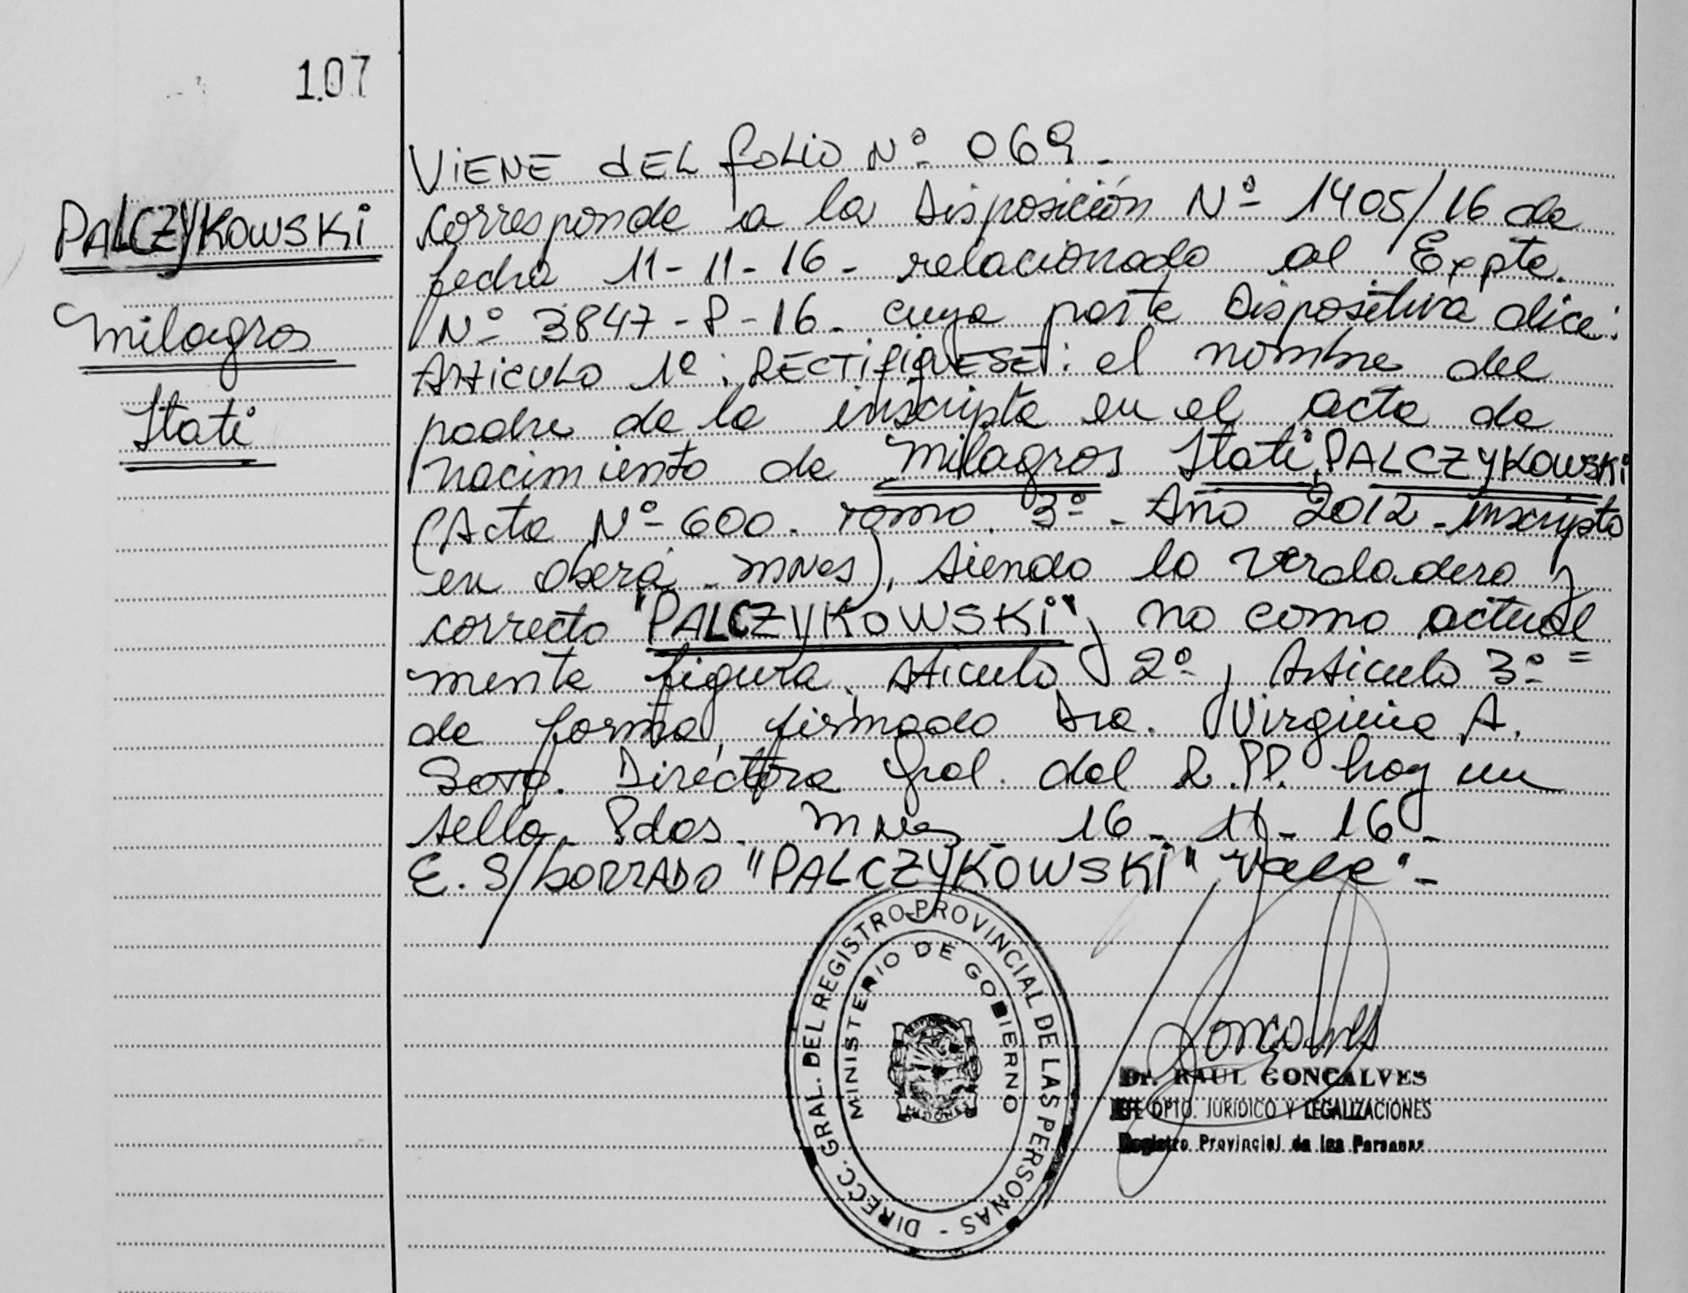 107
PALCZYKOWSKI
Milagros
Itati
VIENE DEL folio Nº 069.
corresponde a la Disposición Nº 1405/16 de
fecha 11-11-16- relacionado al Expte.
Nº 3847-P-16- cuya parte Dispositiva dice:
Articulo 1º: RECTIFIQUESE: el nombre del
padre de la inscripta en el acta de
nacimiento de Milagros Itati PALCZYKOWSKI
(Acta Nº 600. Tomo 3º- Año 2012-inscripto
en oberá - Mnes), siendo lo verdadero y
correcto "PALCZYKOWSKI", no como actual
mente figura. Articulo 2º, Articulo 3º=
de forma, firmado Dra. Virginia A.
Soto. Directora Gral. del R.PP. hay un
sello. Pdos. Mnes 16-11-16-
E. S/borrado "PALCZYKOWSKI" Vale"-
DIRECC. GRAL. DEL REGISTRO PROVINCIAL DE LAS PERSONAS -
MINISTERIO DE GOBIERNO
MISIONES
Goncalves
Dr. RAUL GONCALVES
JEFE DPTO. JURIDICO Y LEGALIZACIONES
Registro Provincial de las Personas